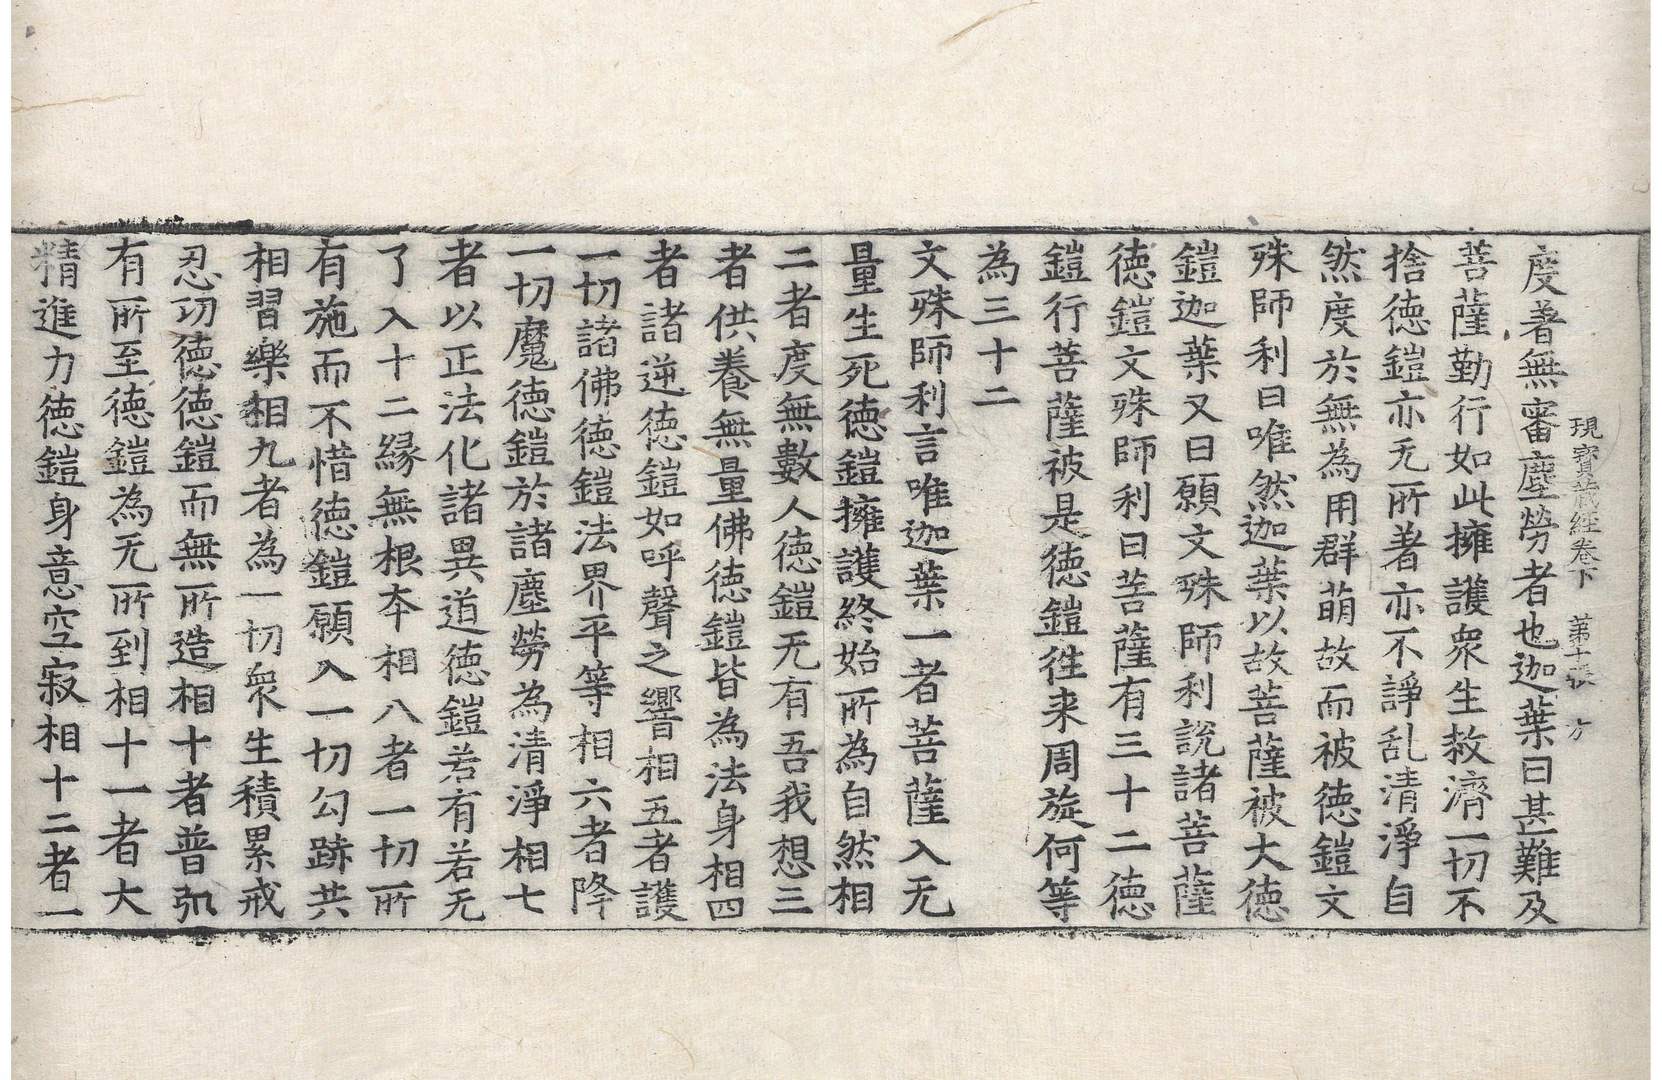 現寶藏經卷下 第十張 方
度著無審塵勞者也迦葉曰甚難及
菩薩勤行如此擁護衆生救濟一切不
捨徳鎧亦无所著亦不諍乱清淨自
然度於無為用群萌故而被徳鎧文
殊師利曰唯然迦葉以故菩薩被大徳
鎧迦葉又曰願文殊師利説諸菩薩
徳鎧文殊師利曰菩薩有三十二徳
鎧行菩薩被是徳鎧徃来周旋何等
為三十二
文殊師利言唯迦葉一者菩薩入无
量生死徳鎧擁護終始所為自然相
二者度無數人徳鎧无有吾我想三
者供養無量佛徳鎧皆為法身相四
者諸逆徳鎧如呼聲之響相五者護
一切諸佛徳鎧法界平等相六者降
一切魔徳鎧於諸塵勞為清淨相七
者以正法化諸異道徳鎧若有若无
了入十二縁無根夲相八者一切所
有施而不惜徳鎧願入一切勾跡共
相習樂相九者為一切衆生積累戒
忍功徳徳鎧而無所造相十者普
有所至徳鎧為无所到相十一者大
精進力徳鎧身意空寂相十二者一